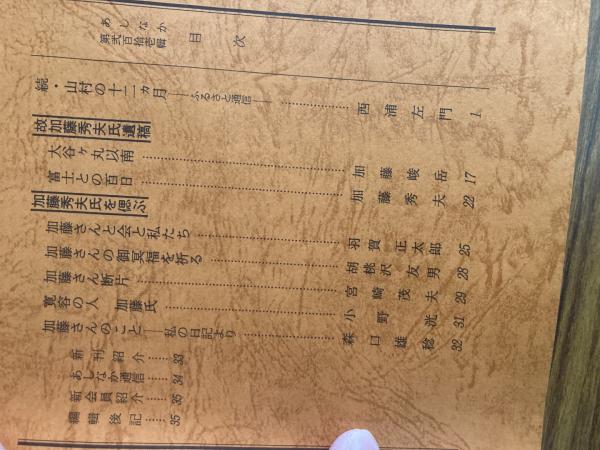 あしなか
第弐百拾壱輯
目次
続・山村の十二ヵ月――ふるさと通信――……………西浦左門 1
故加藤秀夫氏遺稿
大谷ヶ丸以南……………加藤峻岳 17
富士との百日……………加藤秀夫 22
加藤秀夫氏を偲ぶ
加藤さんと会と私たち……………羽賀正太郎 25
加藤さんの御冥福を祈る……………胡桃沢友男 28
加藤さん断片……………宮崎茂夫 29
寛容の人 加藤氏……………小野洸 31
加藤さんのこと――私の日記より……………森口雄稔 32
新刊紹介……33
あしなか通信……34
新会員紹介……35
編輯後記……35